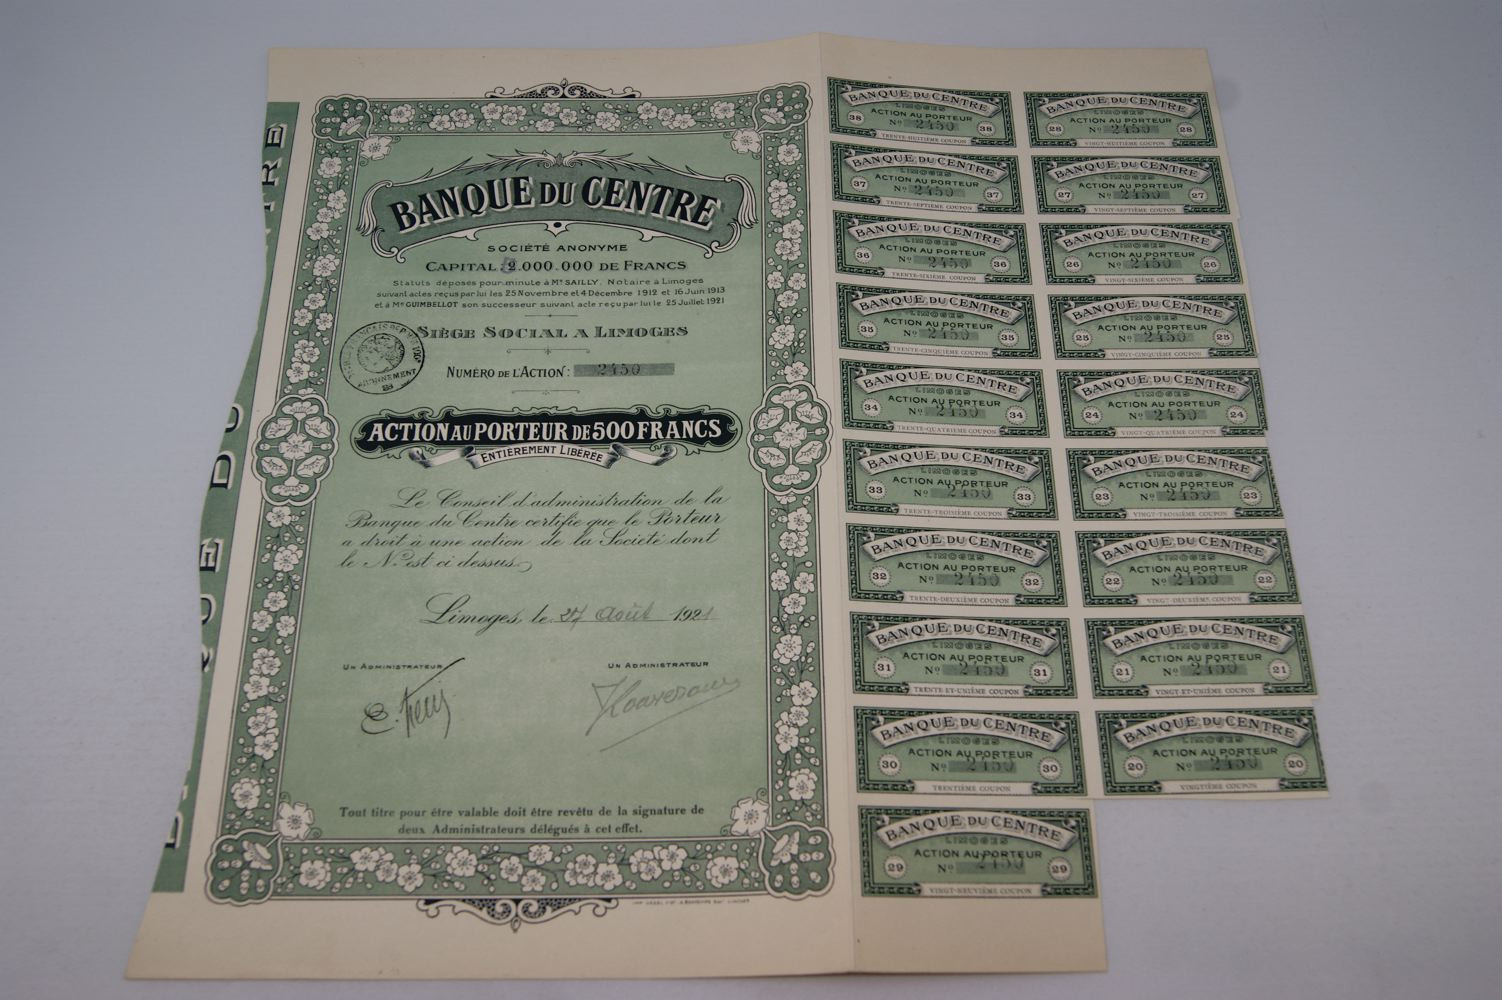 BANQUE DU CENTRE
SOCIÉTÉ ANONYME
CAPITAL: 2.000.000 DE FRANCS
Statuts déposés pour minute à Me SAILLY. Notaire à Limoges
suivant actes reçus par lui les 25 Novembre et 4 Décembre 1912 et 16 Juin 1913
et à Me GUIMBELLOT son successeur suivant acte reçu par lui le 25 Juillet 1921
SIÈGE SOCIAL A LIMOGES
ABONNEMENT
NUMÉRO DE L'ACTION: 2450
ACTION AU PORTEUR DE 500 FRANCS
ENTIÈREMENT LIBÉRÉE
Le Conseil d'administration de la
Banque du Centre certifie que le Porteur
a droit à une action de la Société dont
le No est ci dessus
Limoges, le 27 Août 1921
UN ADMINISTRATEUR
UN ADMINISTRATEUR
Tout titre pour être valable doit être revêtu de la signature de
deux Administrateurs délégués à cet effet.
BANQUE DU CENTRE
LIMOGES
ACTION AU PORTEUR
38 No 2450 38
TRENTE-HUITIÈME COUPON
BANQUE DU CENTRE
LIMOGES
ACTION AU PORTEUR
28 No 2450 28
VINGT-HUITIÈME COUPON
BANQUE DU CENTRE
LIMOGES
ACTION AU PORTEUR
37 No 2450 37
TRENTE-SEPTIÈME COUPON
BANQUE DU CENTRE
LIMOGES
ACTION AU PORTEUR
27 No 2450 27
VINGT-SEPTIÈME COUPON
BANQUE DU CENTRE
LIMOGES
ACTION AU PORTEUR
36 No 2450 36
TRENTE-SIXIÈME COUPON
BANQUE DU CENTRE
LIMOGES
ACTION AU PORTEUR
26 No 2450 26
VINGT-SIXIÈME COUPON
BANQUE DU CENTRE
LIMOGES
ACTION AU PORTEUR
35 No 2450 35
TRENTE-CINQUIÈME COUPON
BANQUE DU CENTRE
LIMOGES
ACTION AU PORTEUR
25 No 2450 25
VINGT-CINQUIÈME COUPON
BANQUE DU CENTRE
LIMOGES
ACTION AU PORTEUR
34 No 2450 34
TRENTE-QUATRIÈME COUPON
BANQUE DU CENTRE
LIMOGES
ACTION AU PORTEUR
24 No 2450 24
VINGT-QUATRIÈME COUPON
BANQUE DU CENTRE
LIMOGES
ACTION AU PORTEUR
33 No 2450 33
TRENTE-TROISIÈME COUPON
BANQUE DU CENTRE
LIMOGES
ACTION AU PORTEUR
23 No 2450 23
VINGT-TROISIÈME COUPON
BANQUE DU CENTRE
LIMOGES
ACTION AU PORTEUR
32 No 2450 32
TRENTE-DEUXIÈME COUPON
BANQUE DU CENTRE
LIMOGES
ACTION AU PORTEUR
22 No 2450 22
VINGT-DEUXIÈME COUPON
BANQUE DU CENTRE
LIMOGES
ACTION AU PORTEUR
31 No 2450 31
TRENTE-ET-UNIÈME COUPON
BANQUE DU CENTRE
LIMOGES
ACTION AU PORTEUR
21 No 2450 21
VINGT-ET-UNIÈME COUPON
BANQUE DU CENTRE
LIMOGES
ACTION AU PORTEUR
30 No 2450 30
TRENTIÈME COUPON
BANQUE DU CENTRE
LIMOGES
ACTION AU PORTEUR
20 No 2450 20
VINGTIÈME COUPON
BANQUE DU CENTRE
LIMOGES
ACTION AU PORTEUR
29 No 2450 29
VINGT-NEUVIÈME COUPON